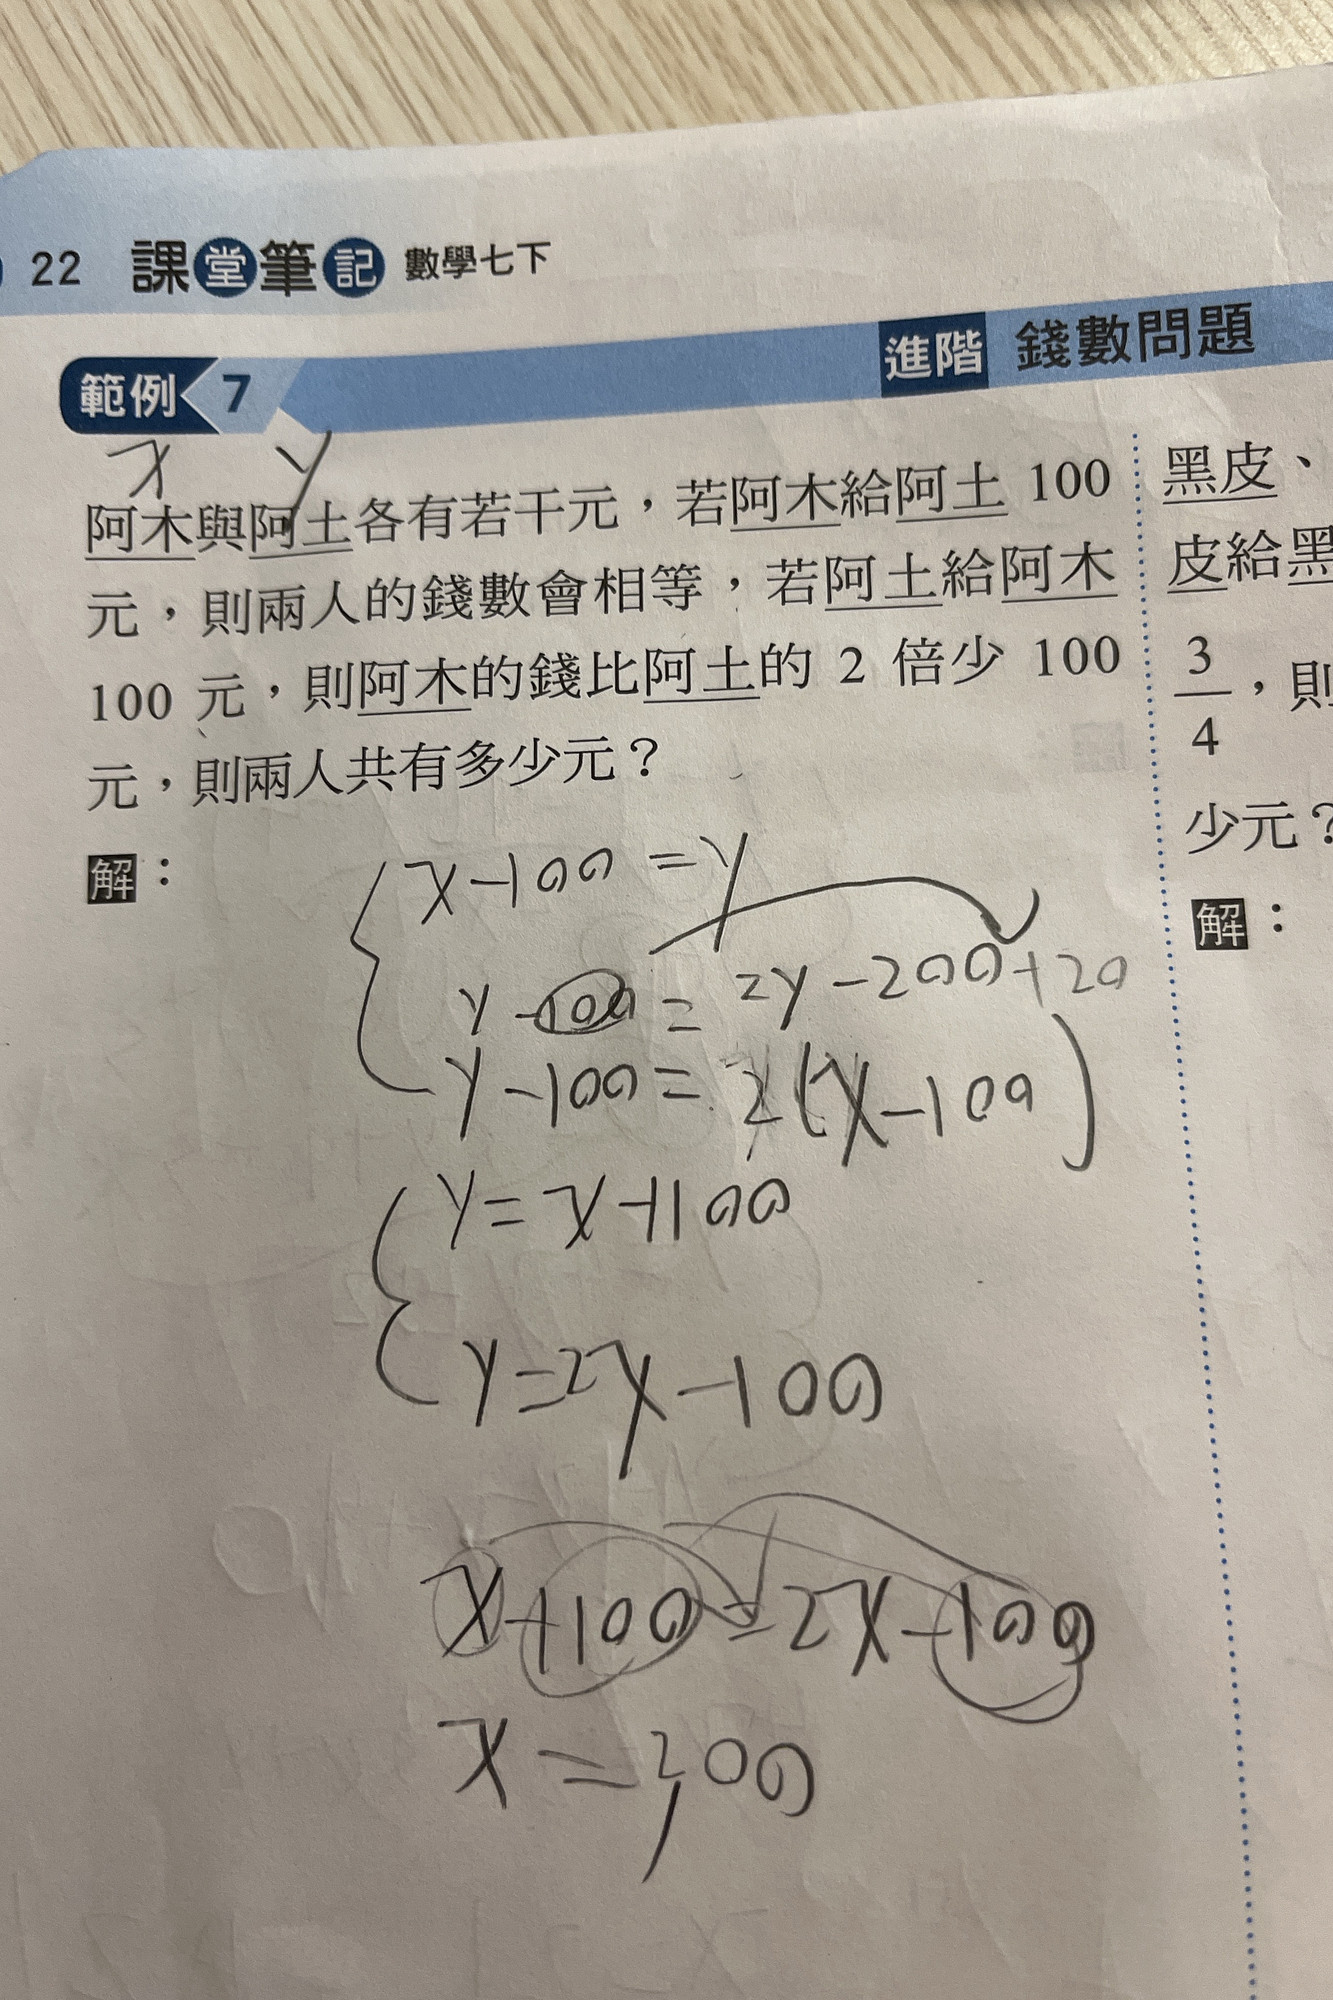 22 課堂筆記 數學七下
範例 7 進階 錢數問題
x y
阿木與阿土各有若干元，若阿木給阿土 100
元，則兩人的錢數會相等，若阿土給阿木
100 元，則阿木的錢比阿土的 2 倍少 100
元，則兩人共有多少元？
解：
x-100=y
y-100=2y-200+20
y-100=2(x-100)
y=x+100
y=2x-100
x+100=2x-100
x=200
黑皮、
皮給黑
3/4，則
少元？
解：